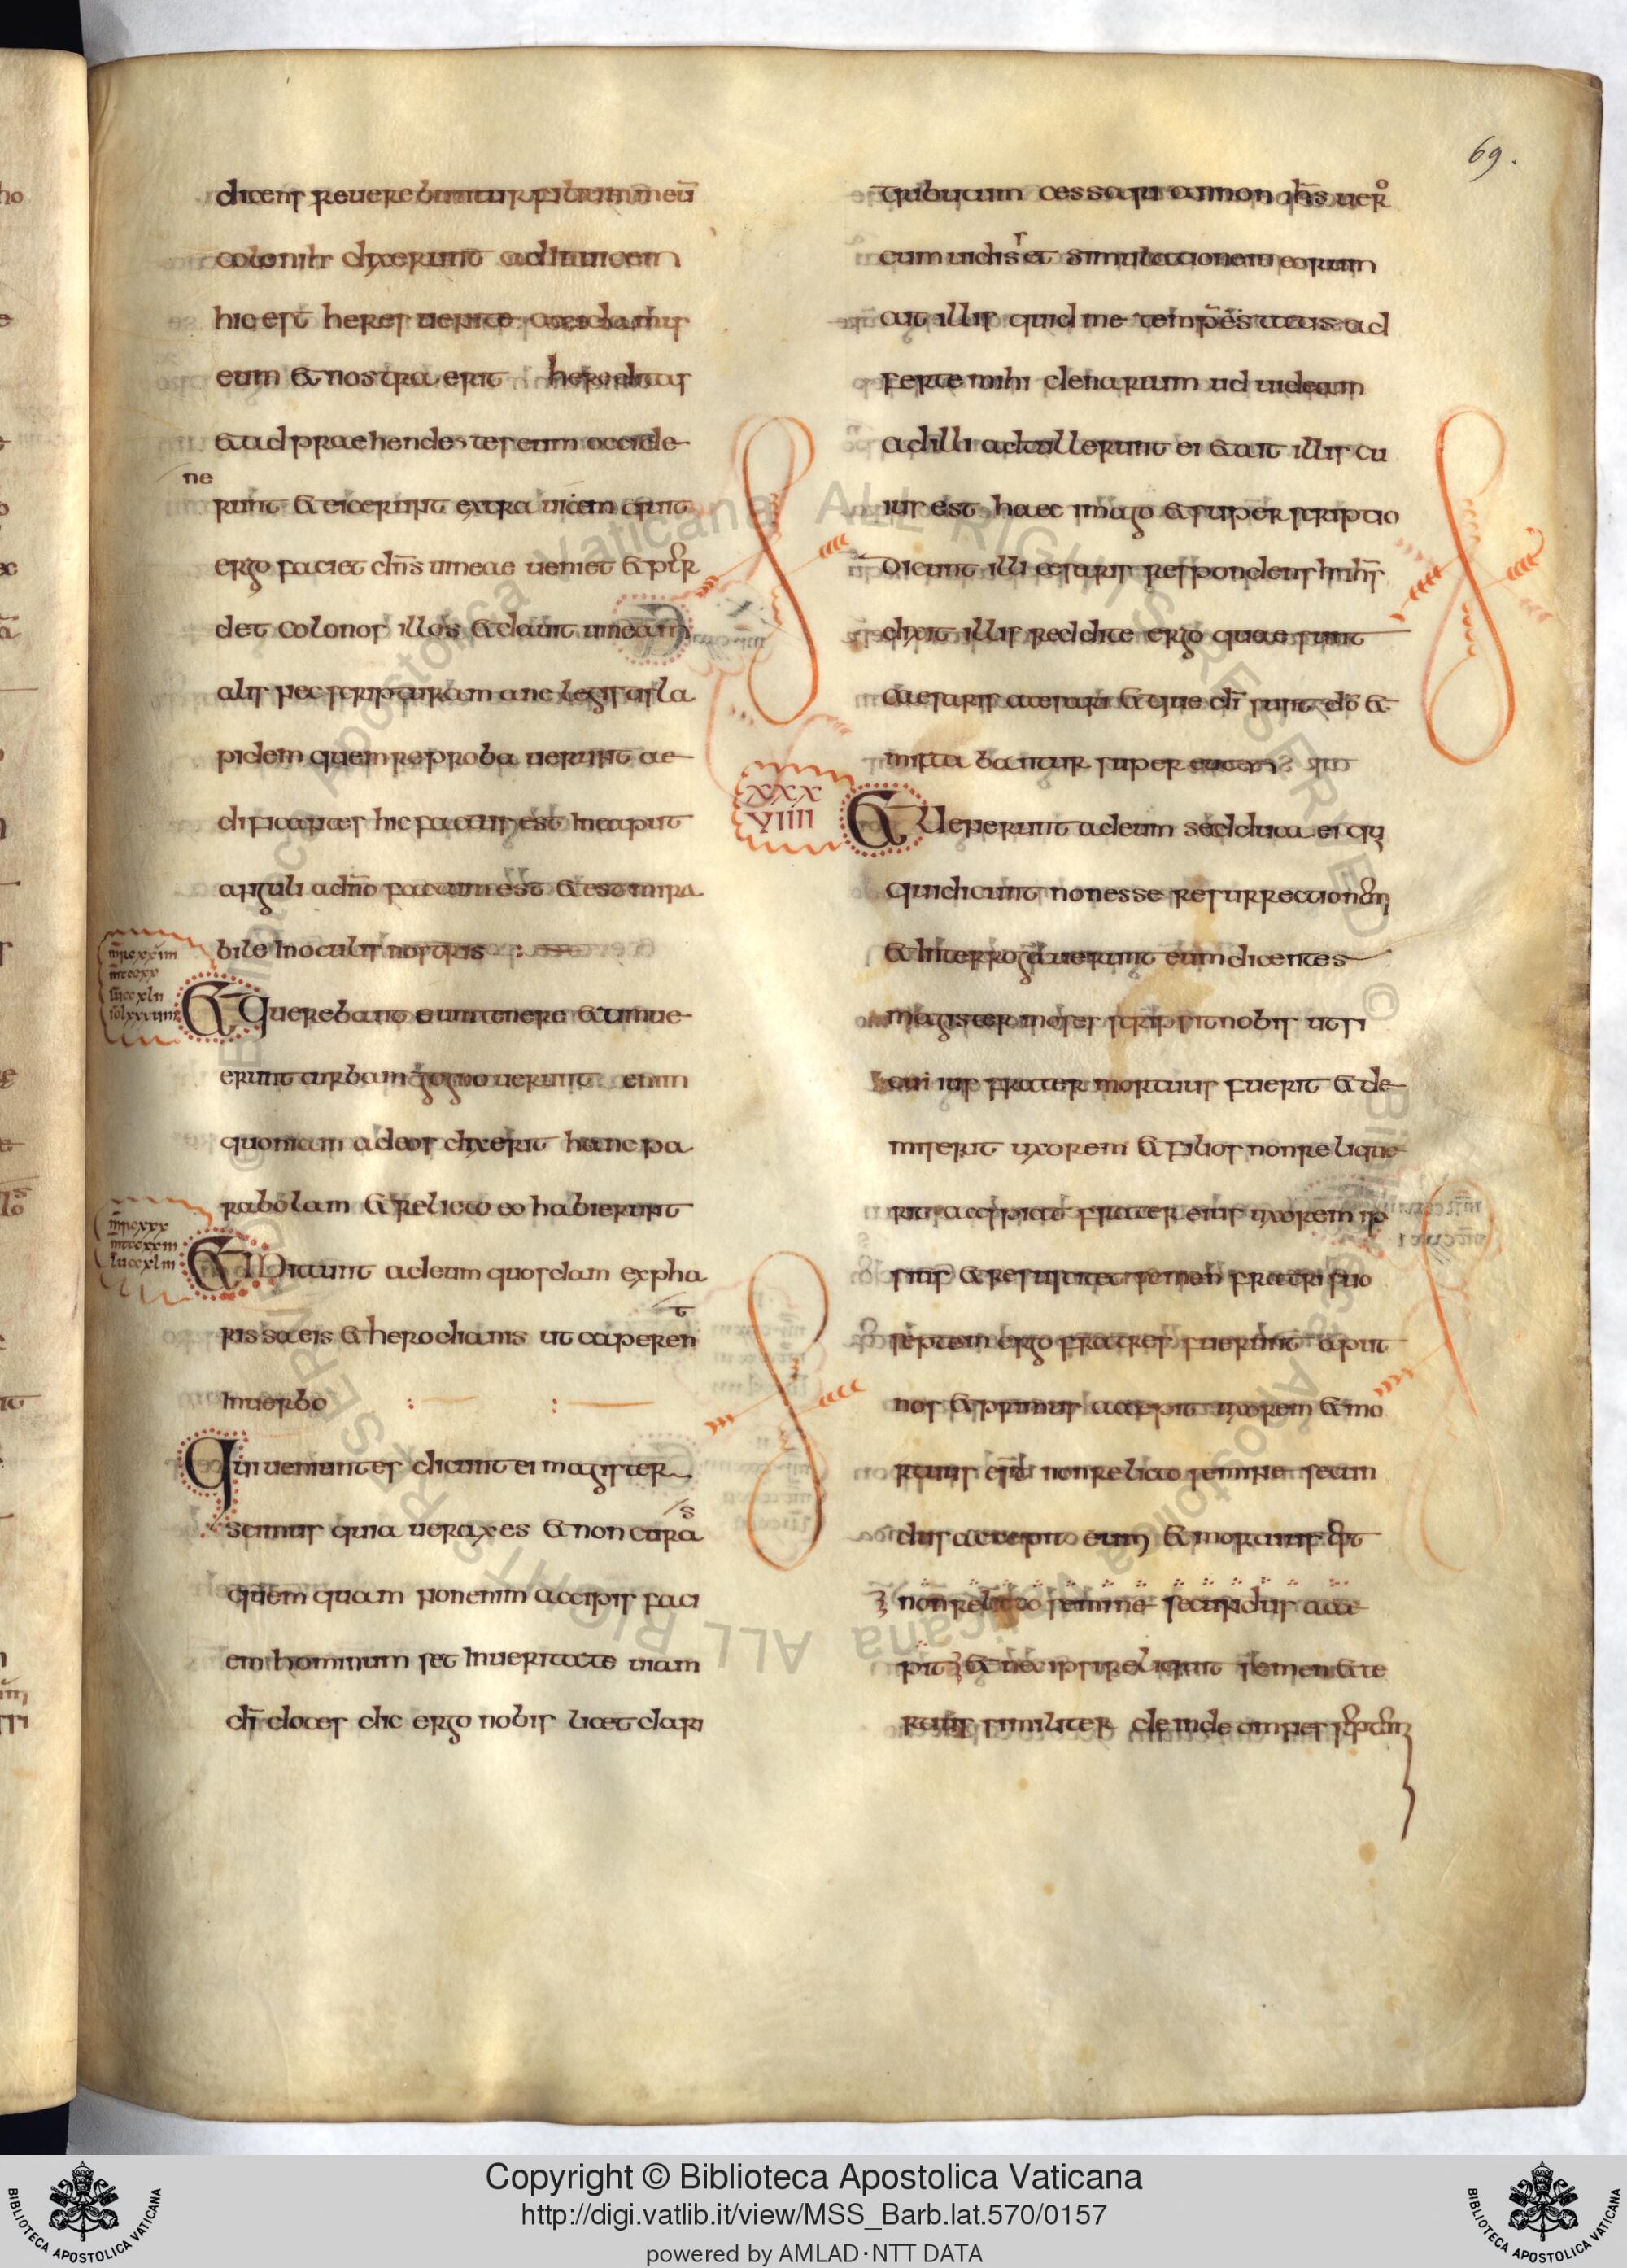 69.
dicens reuerebuntur filium meū
coloni h̄r dixerunt adinuicem
hic est heres uenite occidamus
eum & nostra erit hereditas
& adpraehendentes eum occide
ne
runt & eicerunt extra uiam quit
ergo faciet dn̄s uineae ueniet & per
det colonos illos & dauit uineam
alis nec scripturam anc legistis la
pidem quem reproba uerunt ae
dificantes hic factus est in caput
anguli adn̄o factum est & est mira
bile inoculis nostris
& querebant eum tenere & timue
erunt turbam gogno uerunt enim
quoniam ad eos dixerit hanc pa
rabolam & relicto eo habierunt
& Mitunt ad eum quosdam expha
t
rissaeis & herodianis ut caperen
inuerbo
Qui uenientes dicunt ei magister
s
scimus quia uerax es & non cura
quem quam nonenim accipis faci
em hominum set inueritate uiam
dī doces dic ergo nobis licet dari
tributum cessari annon ih̄s uero
r
cum uidiset simulationem eorum
ait illis quid me temptatis ad
ferte mihi denarium ud uideam
ad illi adtullerunt ei & ait illis cu
ius est haec imago & super scriptio
Dicunt illi cesaris respondens h ih̄s
dixit illis reddite ergo quae sunt
caesaris caesari & que dī sunt dō &
mira bantur super eum
XXX
VIIII
& Uenerunt ad eum sadducei qui
qui dicunt non esse resurrectionem
& interroga uerunt eum dicentes
magister moses scripsit nobis ut si
cui ius frater mortuus fuerit & de
miserit uxorem & filios non relique
rit accipiat frater eius uxorem ip
sius & resuscitet semen fratri suo
septem ergo fratres fuerunt aput
nos & primus accepit uxorem & mo
rtuus est non relicto semine secun
dus accepit eum & mortuus est
non relicto semine secundus acce
pit & nec ipse reliquit semen & te
rtius similiter deinde omnes septem
Copyright © Biblioteca Apostolica Vaticana
http://digi.vatlib.it/view/MSS_Barb.lat.570/0157
powered by AMLAD·NTT DATA
BIBLIOTECA APOSTOLICA VATICANA
BIBLIOTECA APOSTOLICA VATICANA